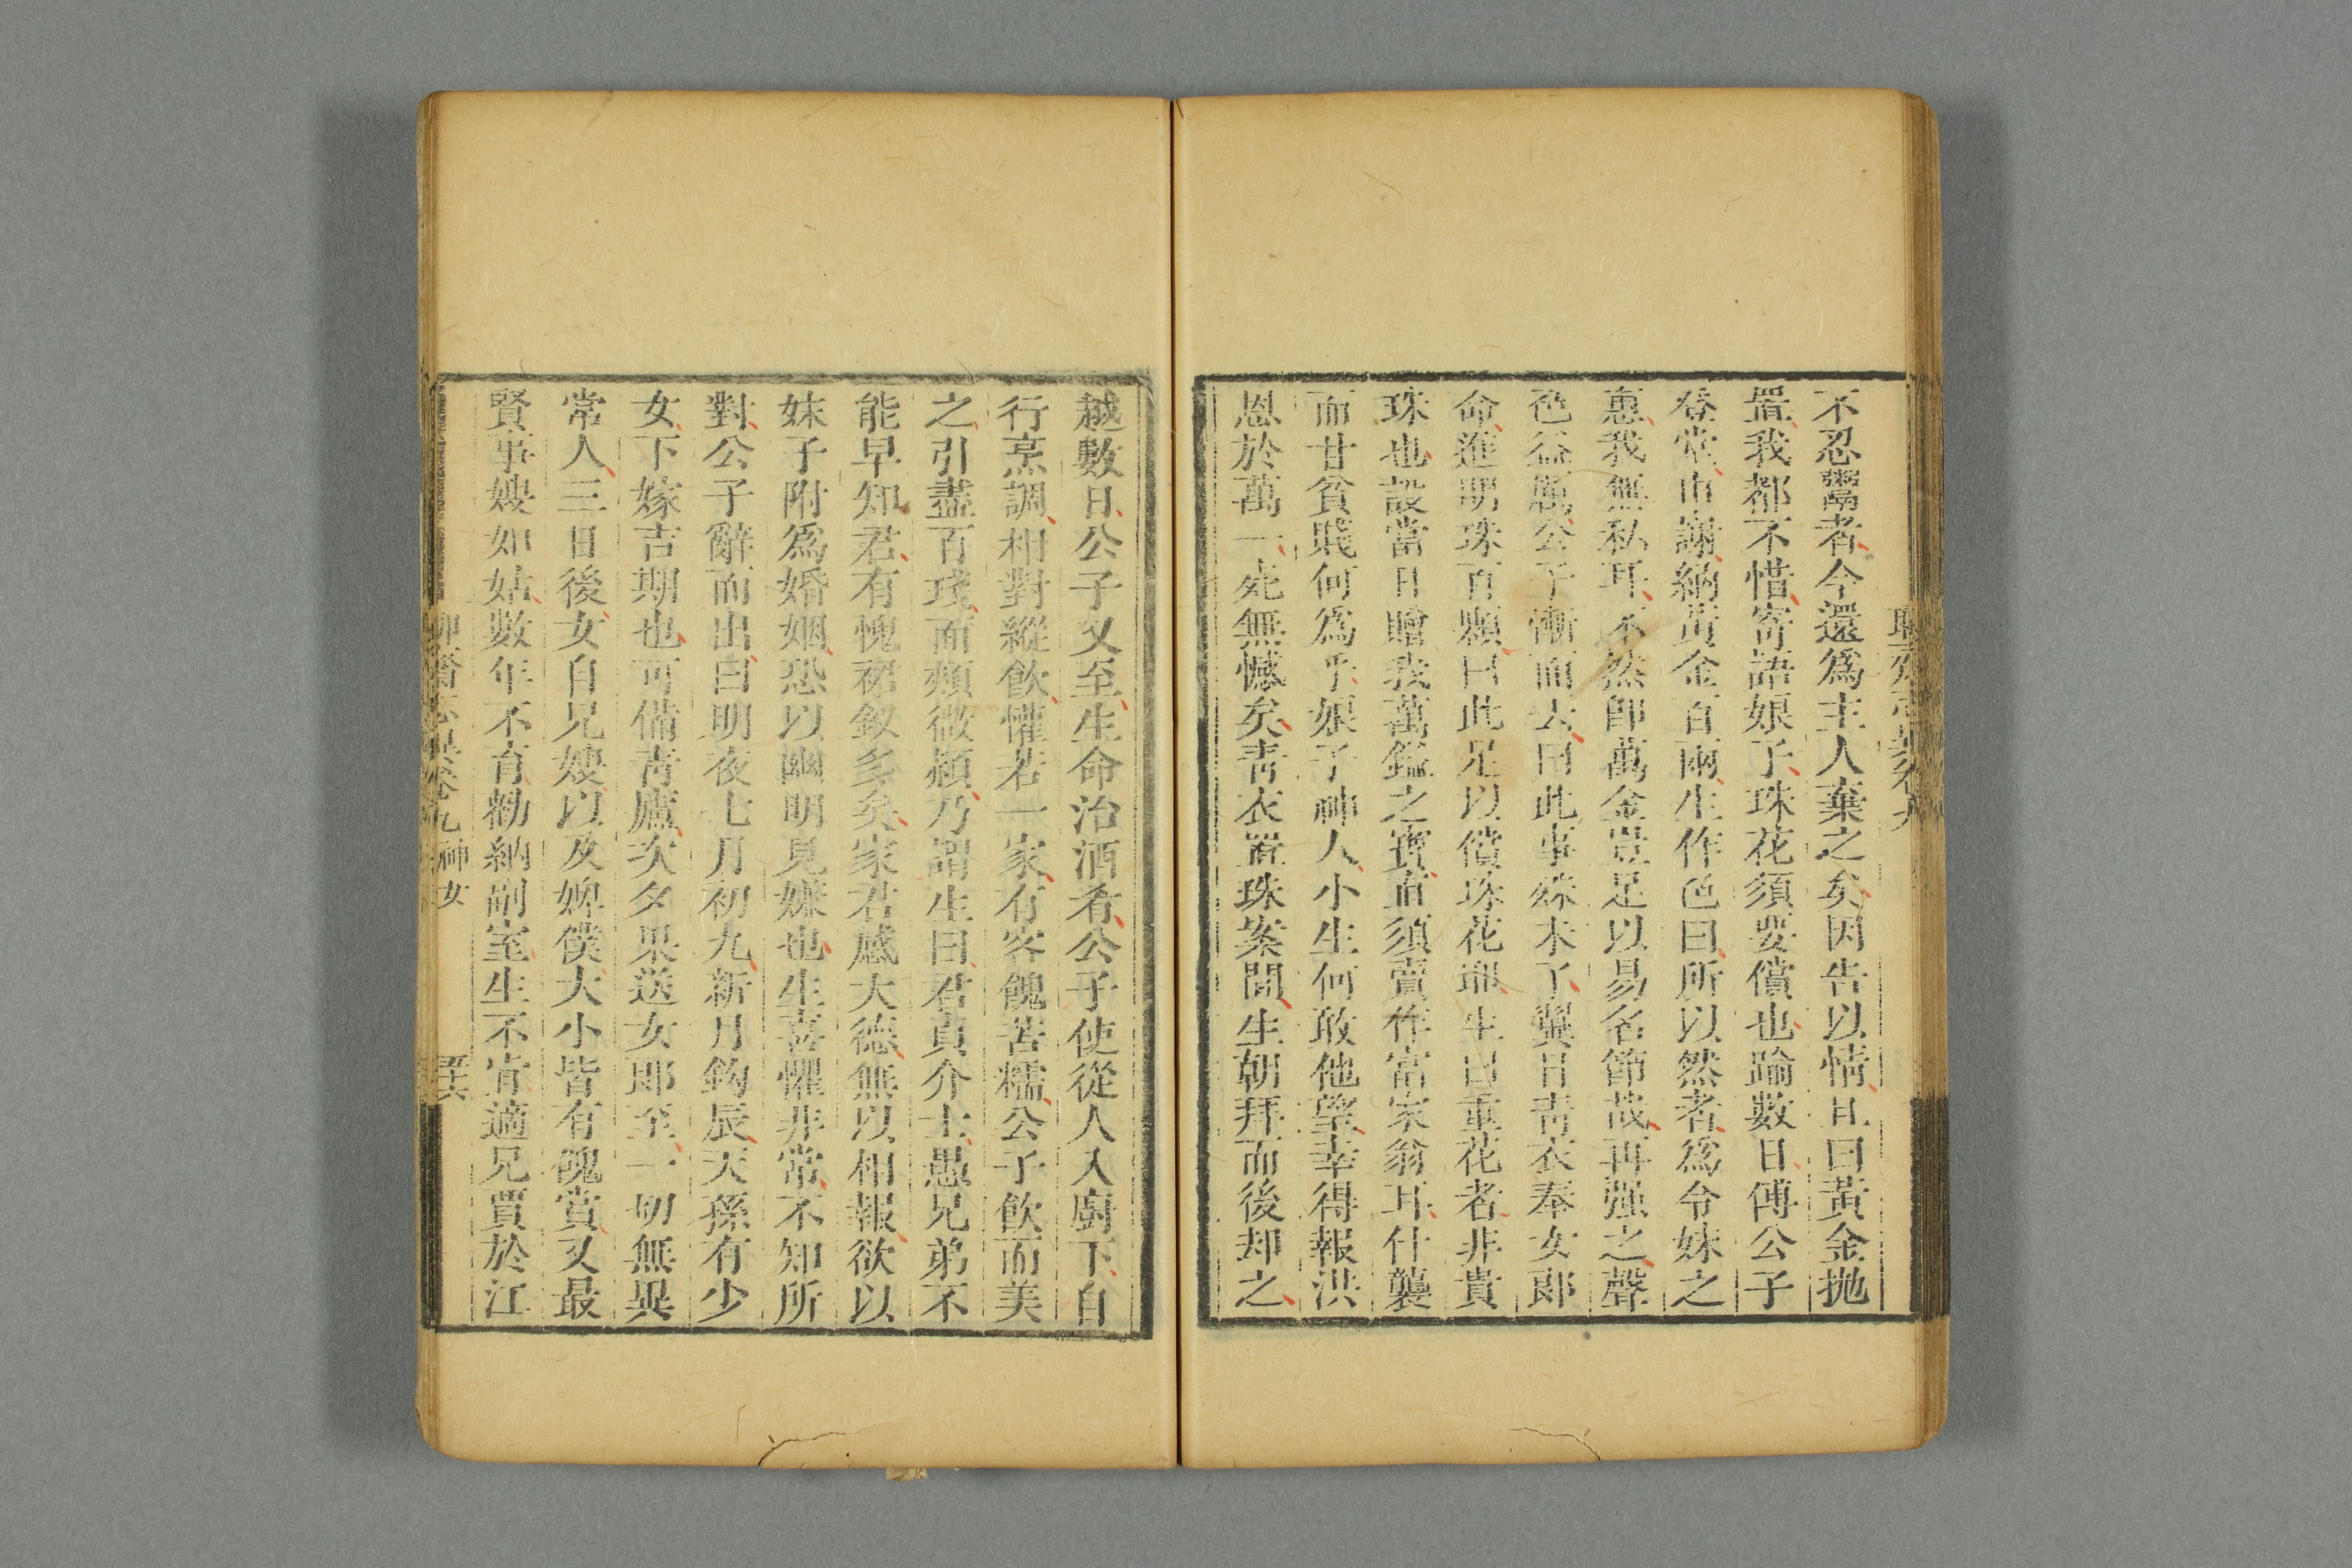 不忍鬻者今還爲主人棄之矣因告以情且曰黃金拋
置我都不惜寄語娘子珠花須要償也踰數日傅公子
登堂申謝納黃金百兩生作色曰所以然者爲令妹之
惠我無私耳不然卽萬金豈足以易名節哉再强之聲
色益厲公子慚而去曰此事殊未了翼日靑衣奉女郎
命進明珠百顆曰此足以償珠花耶生曰重花者非貴
珠也設當日贈我萬鎰之寶直須賣作富家翁耳什襲
而甘貧賤何爲乎娘子神人小生何敢他望幸得報洪
恩於萬一死無憾矣靑衣置珠案間生朝拜而後却之
越數日公子又至生命治酒肴公子使從人入廚下自
行烹調相對縱飮懽若一家有客餽苦糯公子飮而美
之引盡百琖面頰微赬乃謂生曰君貞介士愚兄弟不
能早知君有愧裙釵多矣家君感大德無以相報欲以
妹子附爲婚姻恐以幽明見嫌也生喜懼非常不知所
對公子辭而出曰明夜七月初九新月鈎辰天孫有少
女下嫁吉期也可備靑廬次夕果送女郎至一切無異
常人三日後女自兄嫂以及婢僕大小皆有餽賞又最
賢事嫂如姑數年不育勸納副室生不肯適兄賈於江
卷九 神女